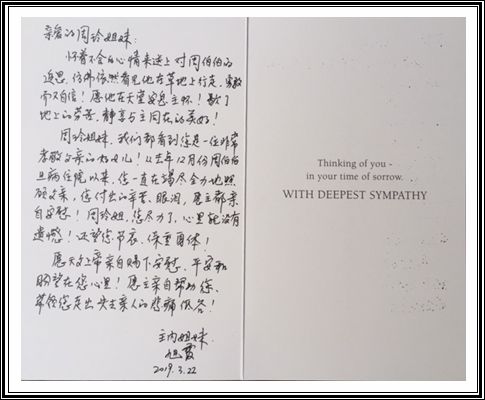 亲爱的周玲姐妹:
怀着不舍的心情来送上对周伯伯的
追思。仿佛依然看见他在草地上行走,
而又自信!愿他在天堂安息主怀!歇了
地上的劳苦,静享与主同在的美好!
周玲姐妹,我们都看到您是一位非常
孝敬父亲的好女儿!从去年12月份周伯伯
因病住院以来,您一直在竭尽全力地照
顾父亲,您付出的辛苦、眼泪,愿主都亲
自安慰!周玲姐,您尽力了,心里就没有
遗憾!还望您节哀,保重身体!
愿天父上帝亲自赐下安慰、平安和
盼望在您心里!愿主亲自帮助您,
带领您走出失去亲人的悲痛低谷!
主内姐妹:
旭霞
2019.3.22
Thinking of you -
in your time of sorrow.
WITH DEEPEST SYMPATHY